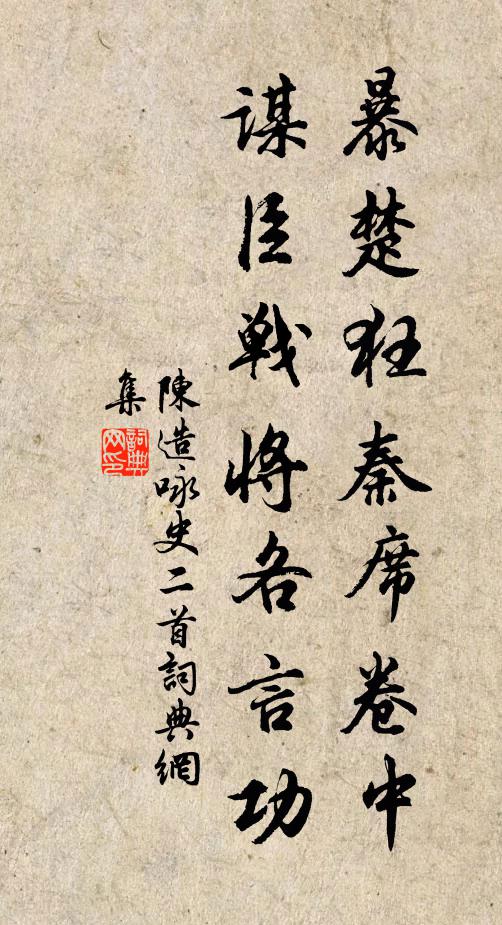 暴楚狂秦席卷中
謀臣戦將各言功
陳造咏史二首詞典網
集
詞典
网印